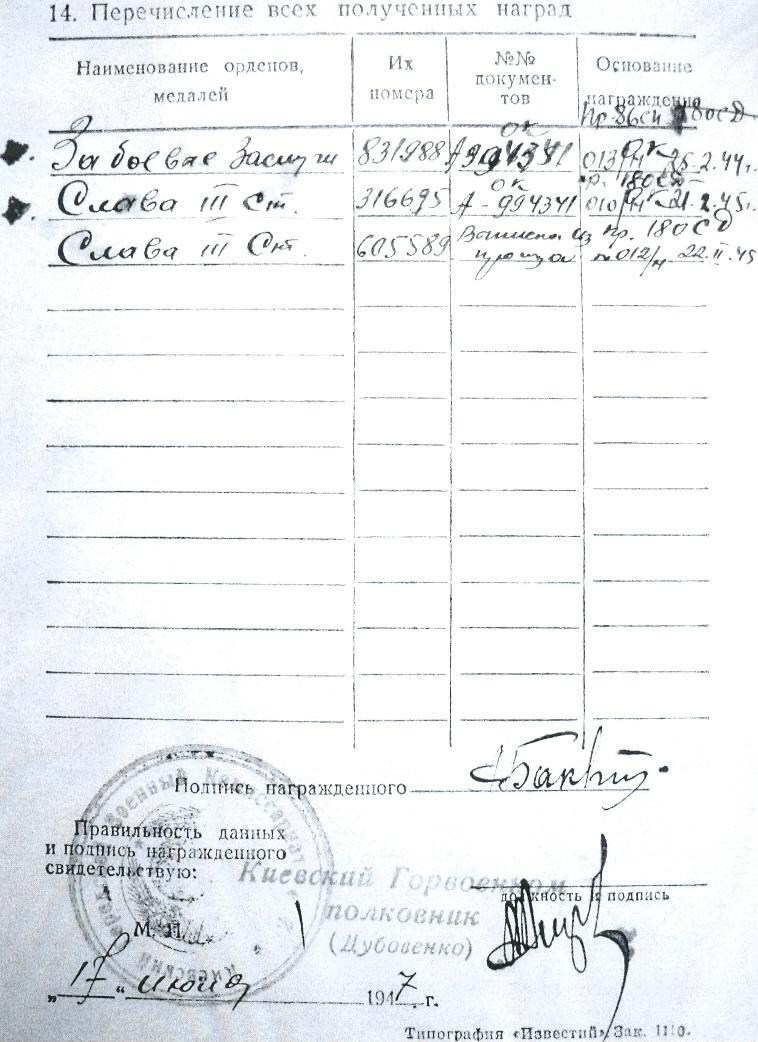 14. Перечисление всех полученных наград
Наименование орденов, медалей
Их номера
№№ документов
Основание награждения
Пр. 86сп 180СД
ок
За боевые заслуги 831988 А 994341 013/н 25.2.44г.
ок пр. 180СД
Слава III Ст. 316695 А-994341 010/н 21.2.45г.
Выписка из пр. 180СД
Слава III Ст. 605589 012/н 22.II.45
Подпись награжденного
Правильность данных
и подпись награжденного
свидетельствую:
Киевский Горвоенком
полковник
(Дубовенко)
должность и подпись
М. П.
„17“ июня 1947 г.
Типография «Известий» Зак.